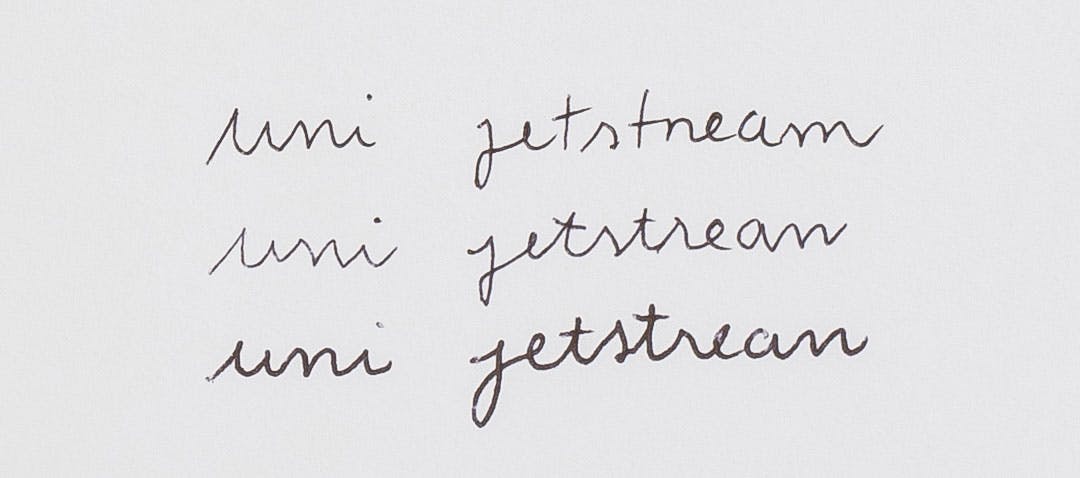 uni jetstream
uni jetstrean
uni jetstrean